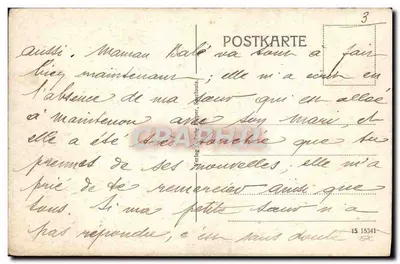 POSTKARTE
3
aussi. Maman Balé va tout à fait
bien maintenant ; elle m'a écrit en
l'absence de ma sœur qui est allée
à maintenon avec son mari, et
elle a été très touchée que tu
prennes de ses nouvelles ; elle m'a
prié de te remercier ainsi que
tous. Si ma petite sœur n'a
pas répondre, c'est sans doute
IS 15341